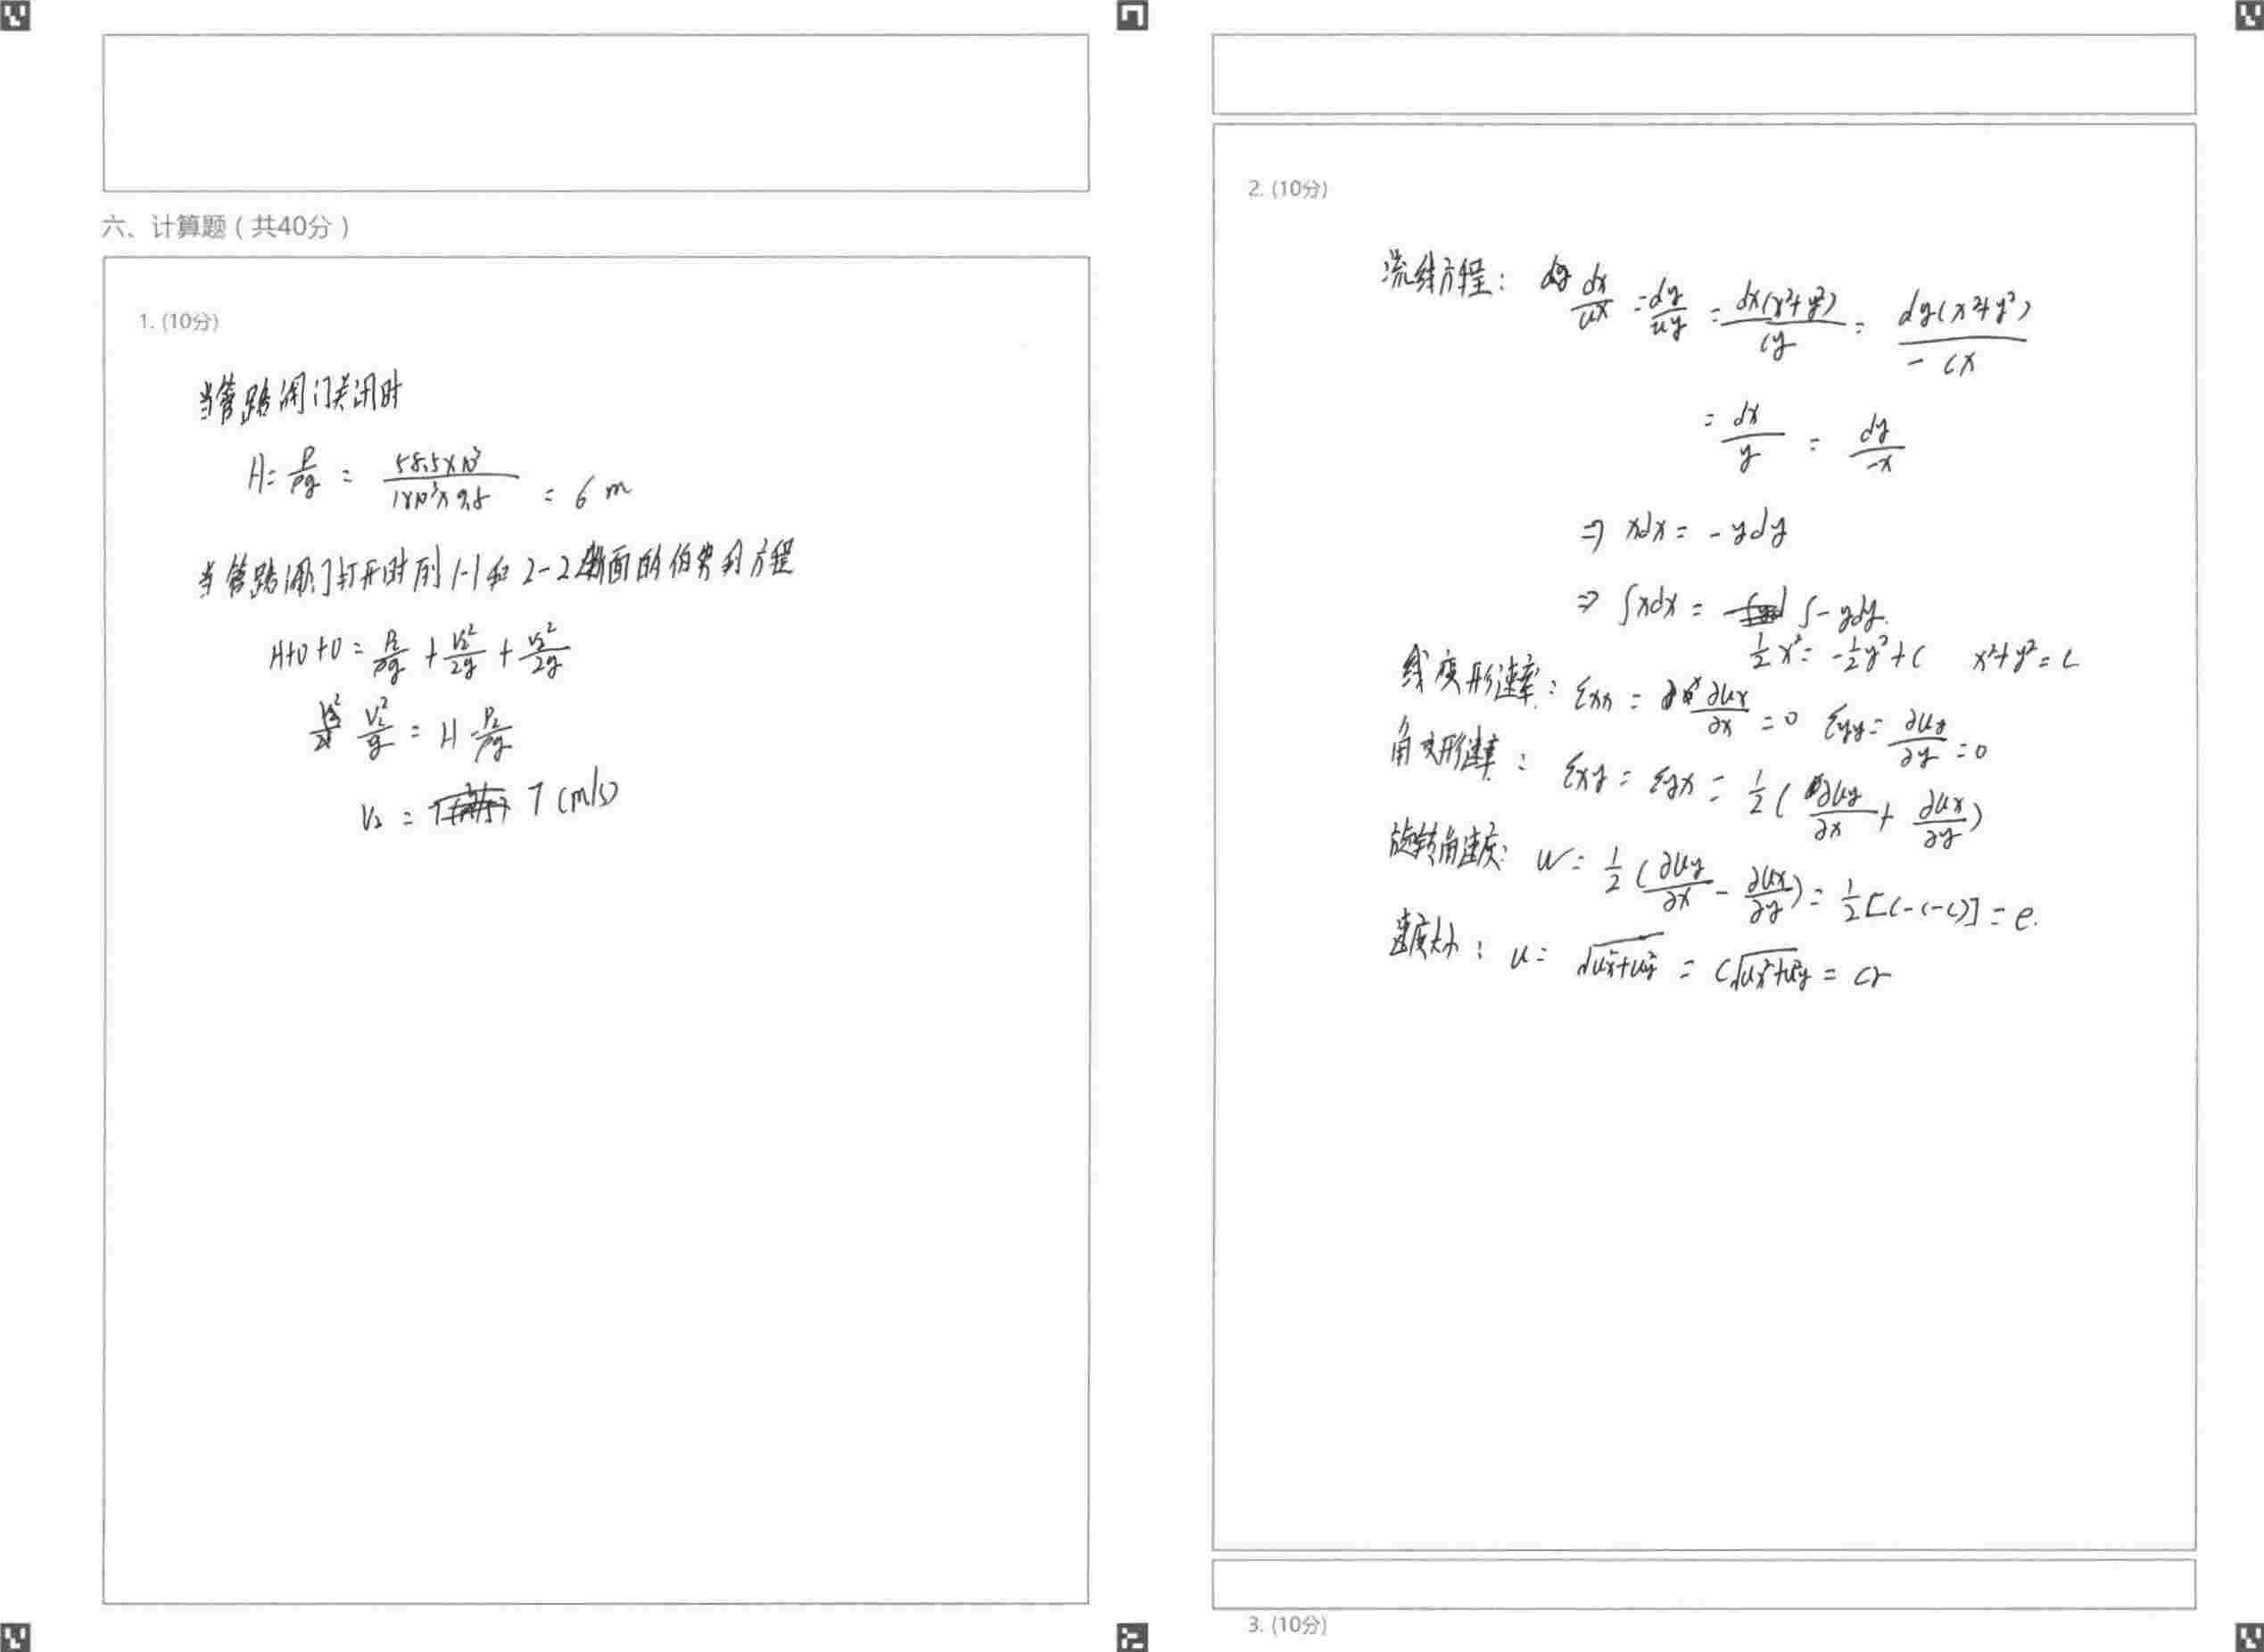 六、计算题（共40分）
1. (10分)
当管路阀门关闭时
H = P/ρg = 58.5×10³ / 1×10³×9.8 = 6 m
当管路阀门打开时列1-1和2-2断面的伯努利方程
H+0+0 = P₂/ρg + V₂²/2g + V₂²/2g
V₂²/g = H - P₂/ρg
V₂ = 7 (m/s)
2. (10分)
流线方程： dx/ux = dy/uy = dx(x²+y²)/cy = dy(x²+y²)/-cx
= dx/y = dy/-x
⇒ xdx = -ydy
⇒ ∫xdx = ∫-ydy.
½x² = -½y²+C x²+y²=C
线变形速率： εxx = ∂ux/∂x = 0 εyy = ∂uy/∂y = 0
角变形速率： εxy = εyx = ½(∂uy/∂x + ∂ux/∂y)
旋转角速度： w = ½(∂uy/∂x - ∂ux/∂y) = ½[c-(-c)] = e.
速度大小： u = √ux²+uy² = c√ux²+u²y = cr
3. (10分)